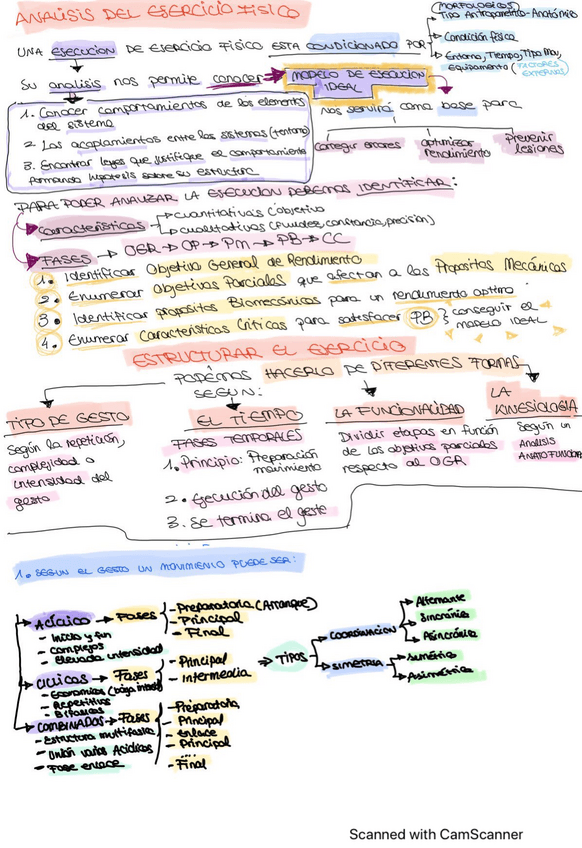 ANALISIS DEL EJERCICIO FISICO
(MORFOLOGICOS)
Tipo Antropometrico-Anatómico
Condición física
Entorno, Tiempo, Tipo Mov,
Equipamiento (FACTORES EXTERNOS)
UNA EJECUCION DE EJERCICIO FISICO ESTA CONDICIONADO POR
Su analisis nos permite conocer → MODELO DE EJECUCION IDEAL
1. Conocer comportamientos de los elementos del sistema
2. Los acoplamientos entre los sistemas (entorno)
3. Encontrar leyes que justifique el comportamiento formando hipotesis sobre su estructura
Nos servirá como base para
Corregir errores
optimizar rendimiento
Prevenir lesiones
PARA PODER ANALIZAR LA EJECUCION DEBEMOS IDENTIFICAR:
Características
cuantitativas (objetivo)
cualitativas (Fluidez, constancia, precisión)
FASES → OGR → OP → PM → PB → CC
1. Identificar Objetivo General de Rendimiento
2. Enumerar Objetivos Parciales que afectan a los Propositos Mecánicos
3. Identificar propositos Biomecánicos para un rendimiento optimo
4. Enumerar Características Críticas para satisfacer PB
conseguir el modelo IDEAL
ESTRUCTURAR EL EJERCICIO
PODEMOS HACERLO DE DIFERENTES FORMAS
SEGUN:
TIPO DE GESTO
Según la repetición,
complejidad o
intensidad del
gesto
EL TIEMPO
FASES TEMPORALES
1. Principio: Preparación movimiento
2. Ejecución del gesto
3. Se termina el gesto
LA FUNCIONALIDAD
Dividir etapas en función
de los objetivos parciales
respecto al OGR
LA KINESIOLOGIA
Según un
ANALISIS
1. SEGUN EL GESTO UN MOVIMIENTO PUEDE SER:
Acíclico → Fases
- Inicio y fin
- Complejos
- Elevada intensidad
- Preparatoria (Arranque)
- Principal
- Final
CICLICAS → Fases
- Repetitivos
- Bifasicos
- Principal
- Intermedia
COMBINADOS → Fases
- Estructura multifasica
- Unión varios Acíclicos
- Fase enlace
- Preparatoria
- Principal
- Enlace
- Principal
...
- Final
⇒ TIPOS
COORDINACION
Alternante
Sincrónico
Asincrónico
SIMETRIA
Simétrico
Asimétrico
Scanned with CamScanner